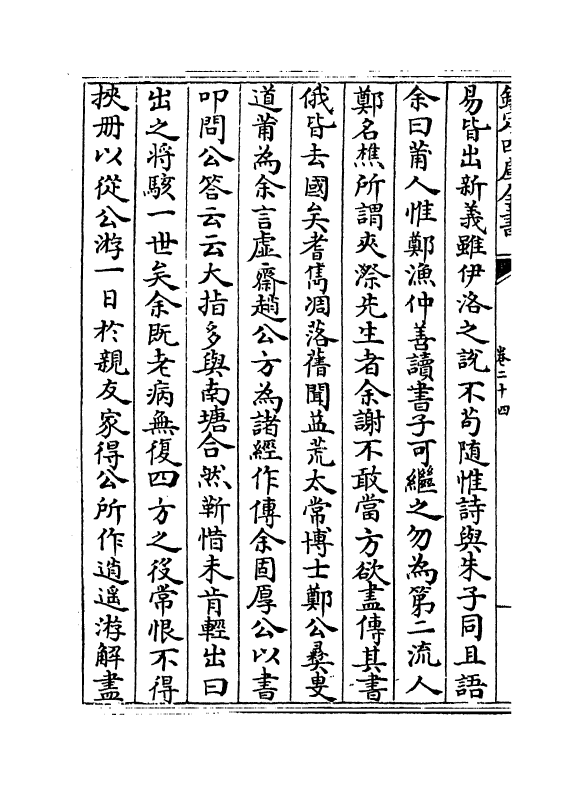 欽定四庫全書
卷二十四
易皆出新義雖伊洛之説不茍随惟詩與朱子同且語
余曰莆人惟鄭漁仲善讀書子可繼之勿為第二流人
鄭名樵所謂夾漈先生者余謝不敢當方欲盡傳其書
俄皆去國矣耆雋凋落舊聞益荒太常博士鄭公彝叟
道莆為余言虚齋趙公方為諸經作傳余固厚公以書
叩問公答云云大指多與南塘合然靳惜未肯輕出曰
出之将駭一世矣余既老病無復四方之役常恨不得
挾册以從公游一日於親友家得公所作逍遥游解盡